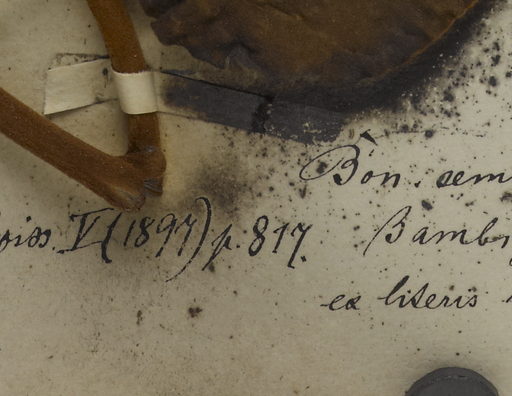 Bon. sem
oiss. V (1897) p. 817.
Bambu
ex literis